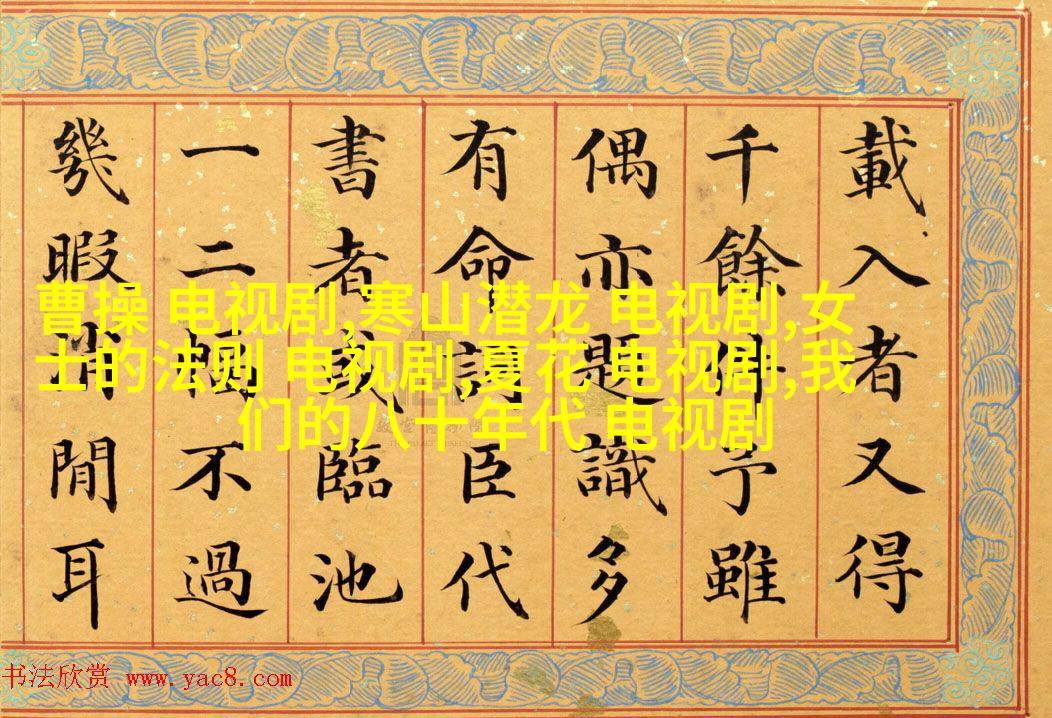 載入者又得
千餘件予雖
偶亦題識多
有命詞臣代
書者或臨池
一二幅不過
幾暇消閒耳
曹操 电视剧,寒山潜龙 电视剧,女
士的法则 电视剧,夏花 电视剧,我
们的八十年代 电视剧
书法欣赏 www.yac8.com